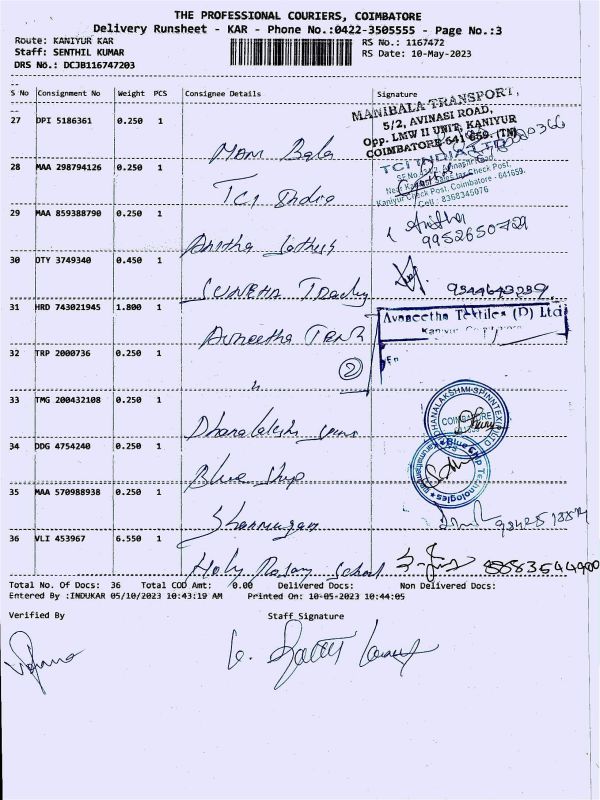 THE PROFESSIONAL COURIERS, COIMBATORE
Delivery Runsheet - KAR - Phone No.:0422-3505555 - Page No.:3
Route: KANIYUR KAR RS No.: 1167472
Staff: SENTHIL KUMAR RS Date: 10-May-2023
DRS No.: DCJB116747203
S No Consignment No Weight PCS Consignee Details Signature
MANIBALA TRANSPORT,
5/2, AVINASI ROAD,
Opp. LMW II UNIT, KANIYUR
COIMBATORE-641 659. (TN)
27 DPI 5186361 0.250 1
Mani Bala
TCI INDIA LTD
Near Kaniyur Check Post,
Kaniyur Check Post, Coimbatore - 641659.
Cell : 8368345076
28 MAA 298794126 0.250 1
TCI India
29 MAA 859388790 0.250 1
Anitha
9952650729
Anitha
30 DTY 3749340 0.450 1
SUNEHA
9344643289
31 HRD 743021945 1.800 1
Avneetha
Avneetha Textiles (D) Ltd
Kaniyur
32 TRP 2000736 0.250 1
"
2
33 TMG 200432108 0.250 1
DHANALAKSHMI SPINNTEX
COIMBATORE
34 DDG 4754240 0.250 1
Blue Chip
Blue Chip Technologies
35 MAA 570988938 0.250 1
Shanmugam
36 VLI 453967 6.550 1
Holy Rosary School
Total No. Of Docs: 36 Total COD Amt: 0.00 Delivered Docs: Non Delivered Docs:
Entered By :INDUKAR 05/10/2023 10:43:19 AM Printed On: 10-05-2023 10:44:05
Verified By Staff Signature